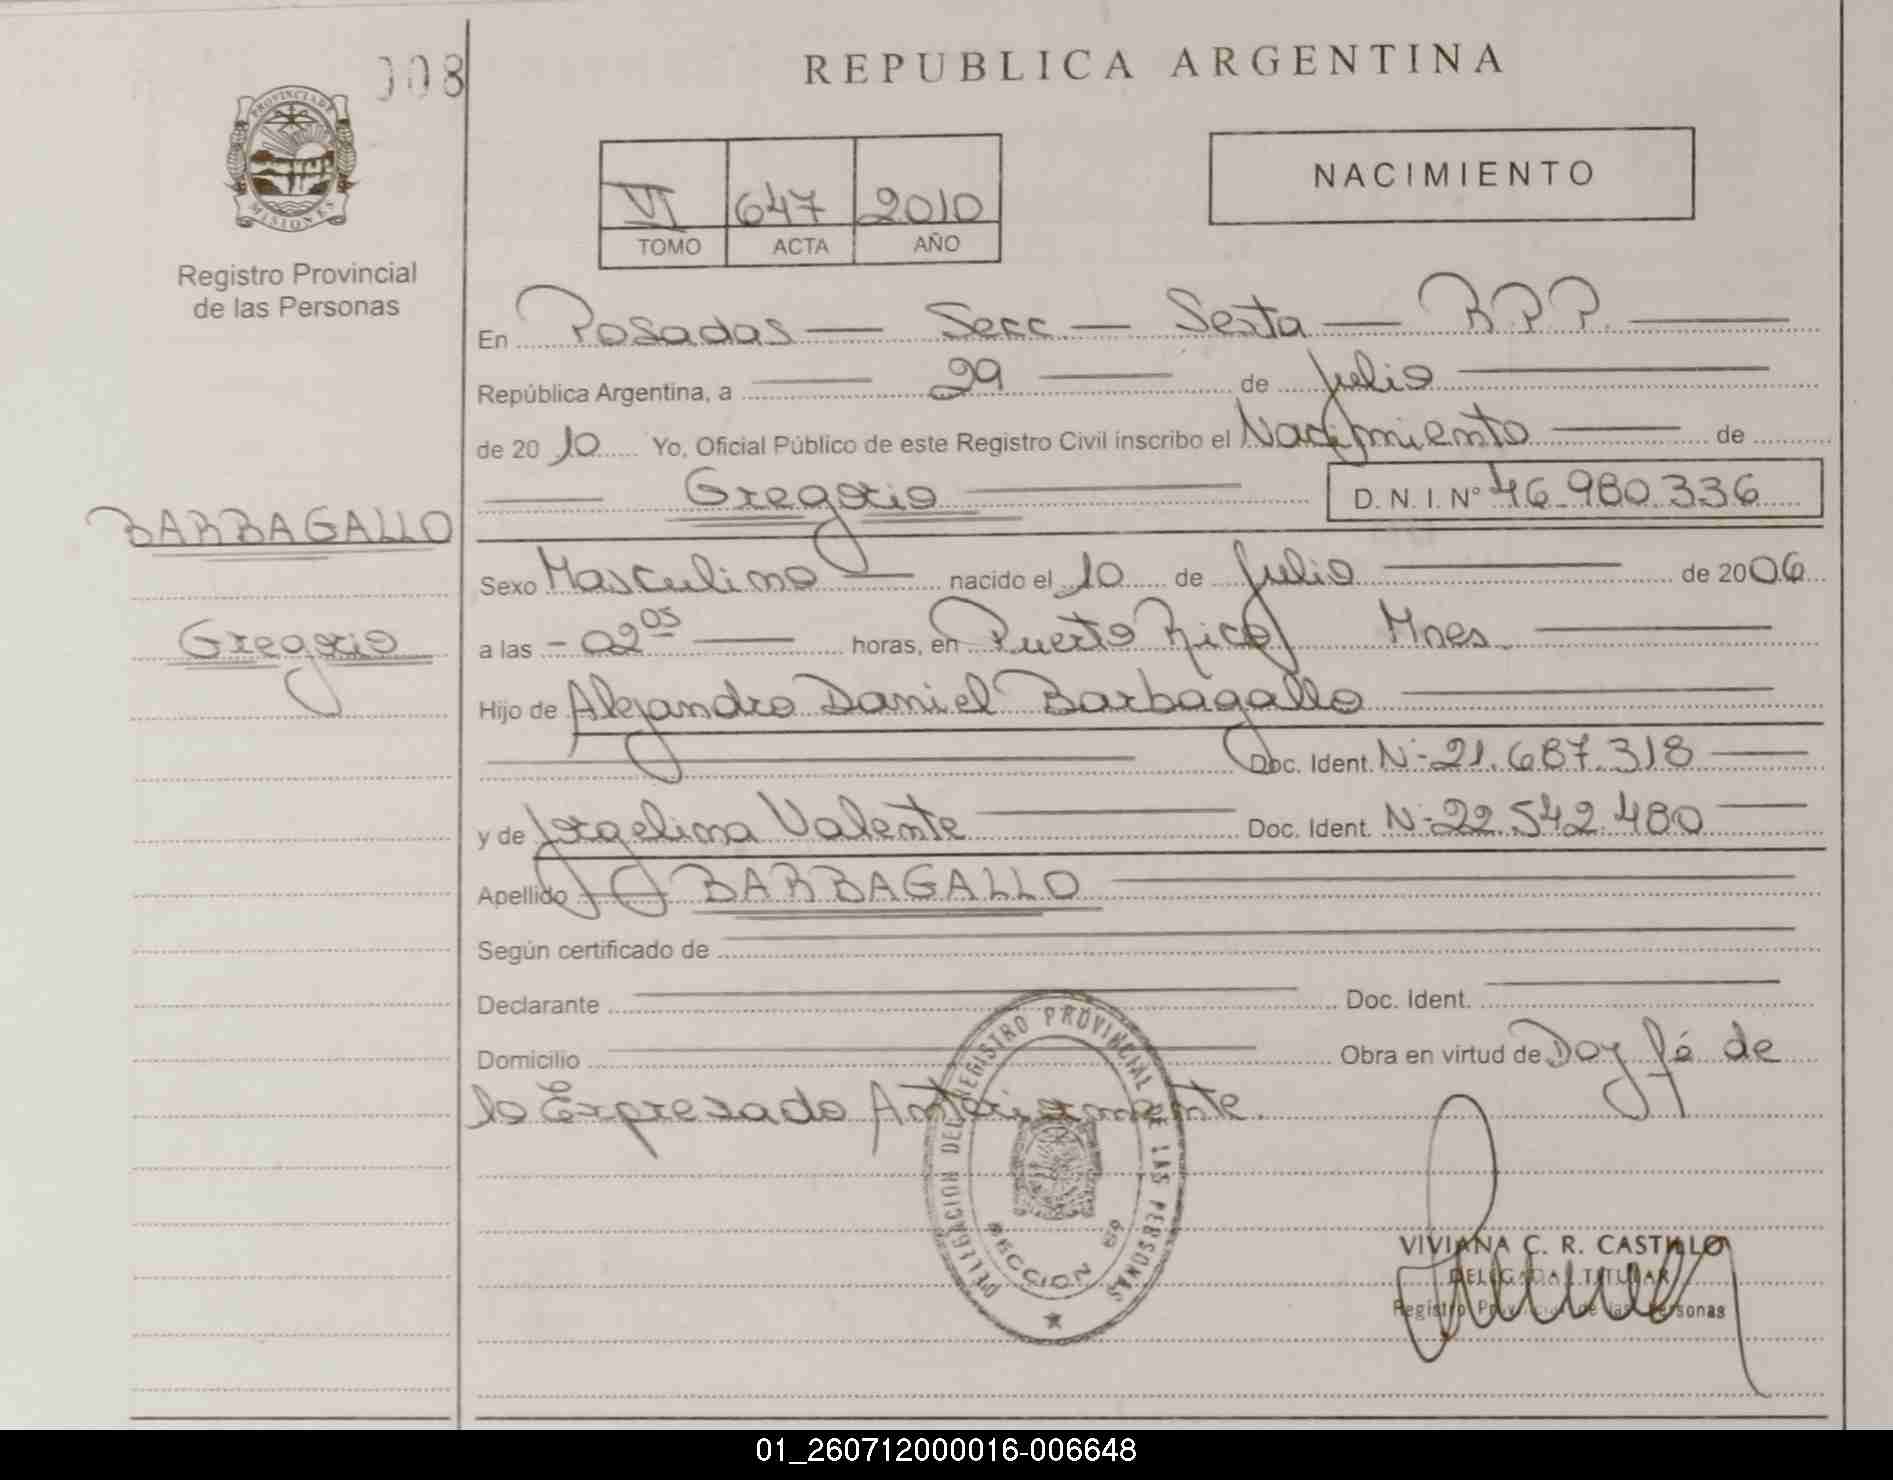 008
PROVINCIA DE
MISIONES
Registro Provincial
de las Personas
BARBAGALLO
Gregorio
REPUBLICA ARGENTINA
VI 647 2010
TOMO ACTA AÑO
NACIMIENTO
En Posadas — Secc — Sexta — R.P.P.
República Argentina, a 29 de Julio
de 2010 Yo, Oficial Público de este Registro Civil inscribo el Nacimiento de
Gregorio D. N. I. Nº 46.980.336
Sexo Masculino nacido el 10 de Julio de 2006
a las - 02 05 horas, en Puerto Rico Mnes.
Hijo de Alejandro Daniel Barbagallo
Doc. Ident. Nº 21.687.318
y de Jorgelina Valente Doc. Ident. Nº 22.542.480
Apellido BARBAGALLO
Según certificado de
Declarante Doc. Ident.
Domicilio Obra en virtud de Doy fé de
lo Expresado Anteriormente.
DELEGACION DEL REGISTRO PROVINCIAL DE LAS PERSONAS
SECCION 6ª
VIVIANA C. R. CASTILLO
DELEGADA TITULAR
Registro Provincial de las Personas
01_260712000016-006648